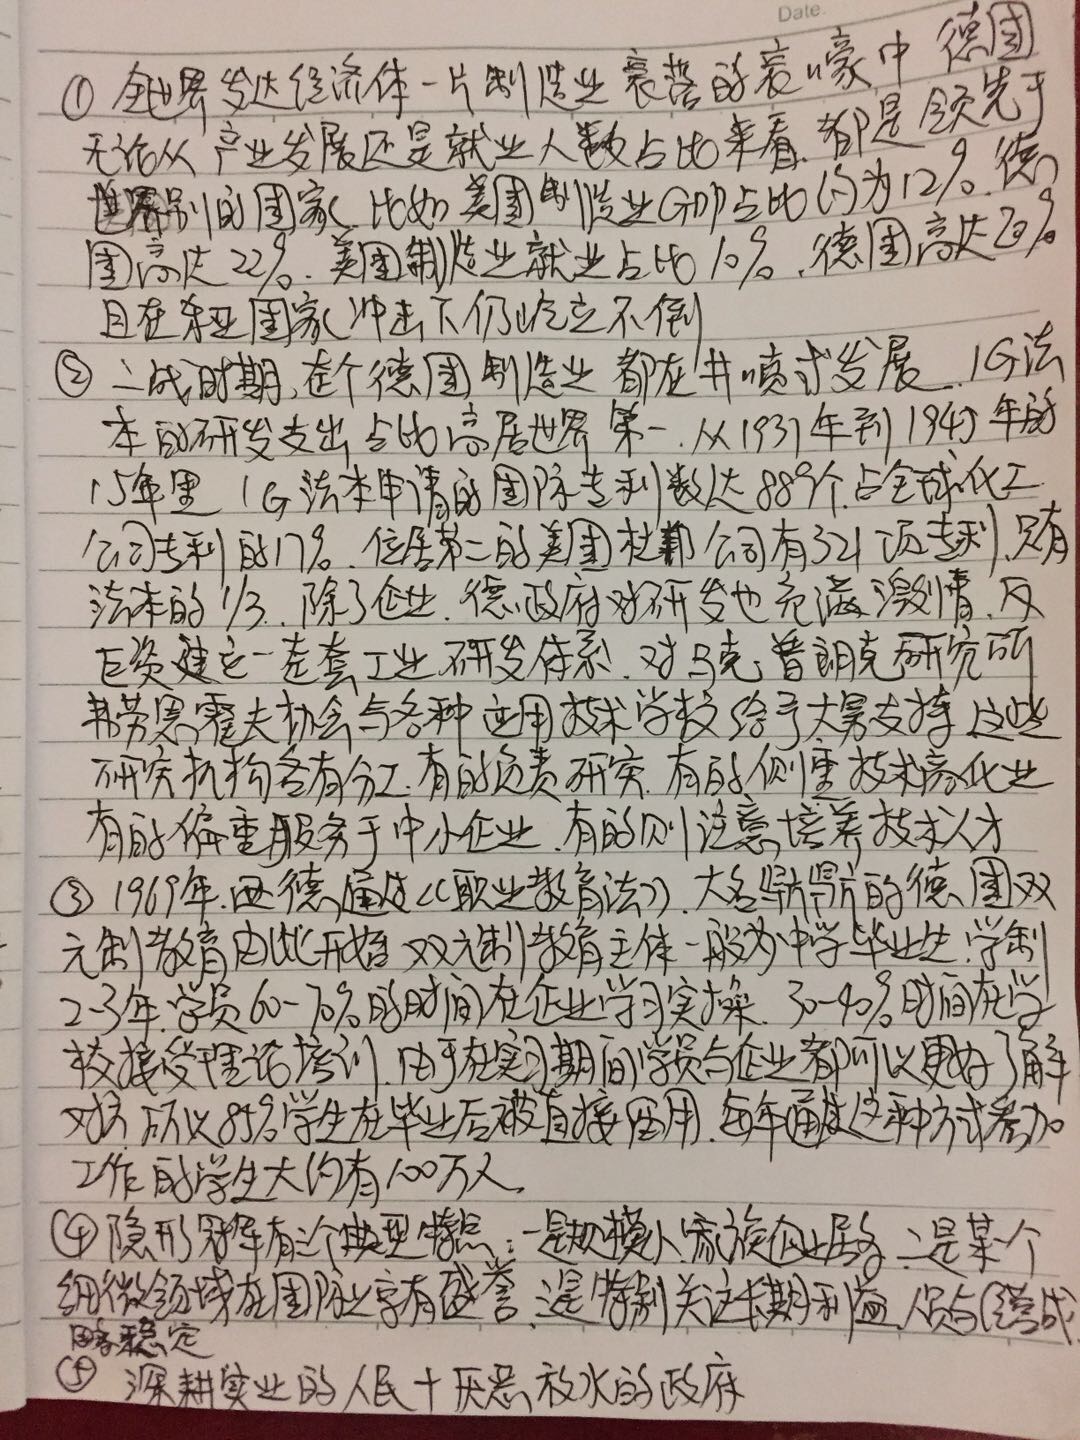 Date.
① 全世界发达经济体一片制造业衰落的哀嚎中 德国
无论从产业发展还是就业人数占比来看.都是领先于
别的国家 比如美国制造业GDP占比约为12%.德
国高达22%.美国制造业就业占比10%.德国高达20%
且在东亚国家冲击下仍屹立不倒
② 二战时期,在个德国制造业都在井喷式发展.IG法
本的研发支出占比高居世界第一.从1931年到1945年的
15年里 IG法本申请的国际专利数达889个.占全球化工
公司专利的17%.位居第二的美国杜邦公司有321项专利.只有
法本的1/3.除了企业.德政府对研发也充满激情.反
巨资建立一套工业研发体系.对马克,普朗克研究所
弗劳恩霍夫协会与各种应用技术学校给予大力支持 这些
研究机构各有分工.有的负责研究.有的侧重技术商化业
有的偏重服务于中小企业.有的则注意培养技术人才
③ 1969年.西德通过《职业教育法》.大名鼎鼎的德国双
元制教育由此开始 双元制教育主体一般为中学毕业生.学制
2-3年.学员60-70%的时间在企业学习实操.30-40%时间在学
校接受理论培训.由于在实习期间学员与企业都可以更好了解
对方 所以85%学生在毕业后被直接留用.每年通过这种方式参加
工作的学生大约有100万人.
④ 隐形冠军有三个典型特点:一是规模小.家族企业居多 二是某个
细微领域在国际上享有盛誉.三是特别关注长期利益.人员与
略稳定
⑤ 深耕实业的人民+厌恶放水的政府